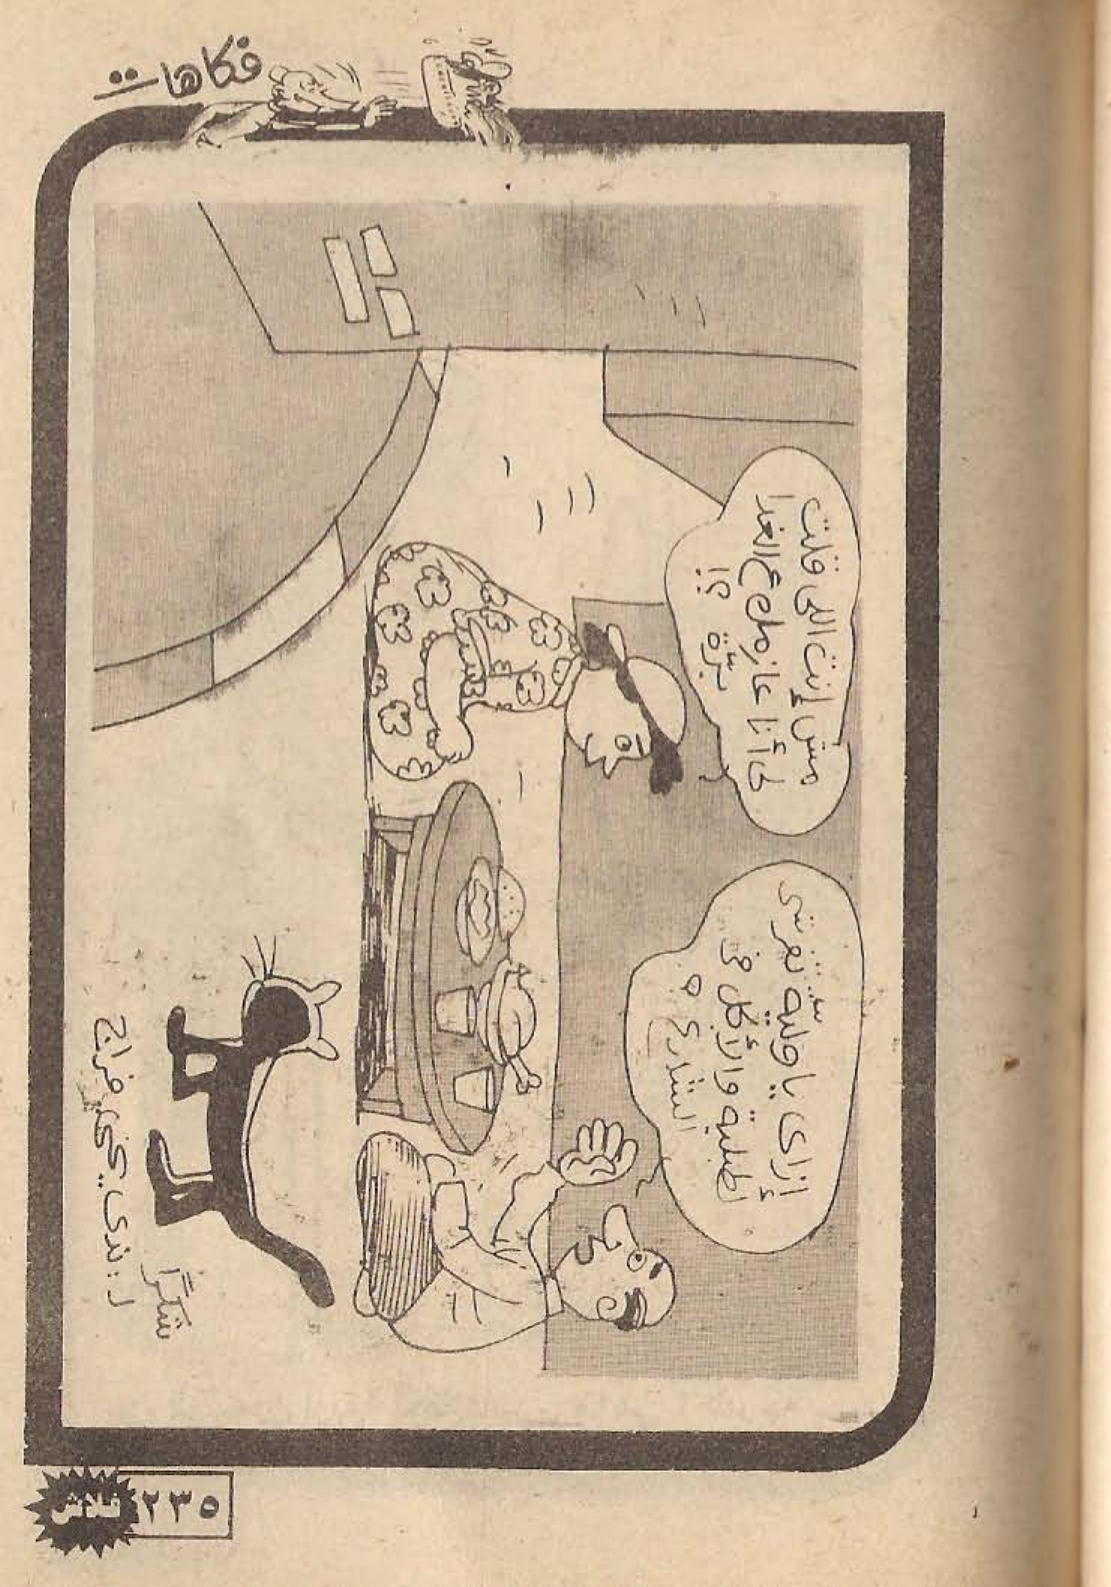 فكاهات
إزاى يا وليّة تفرشى
الطبلية والأكل فى
الشارع ؟
مش إنت اللى قلت
لى أنا عازمك ع الغدا
برّة ؟!
شكراً
لـ : ندى يحيى فراج
٢٣٥ فلاش